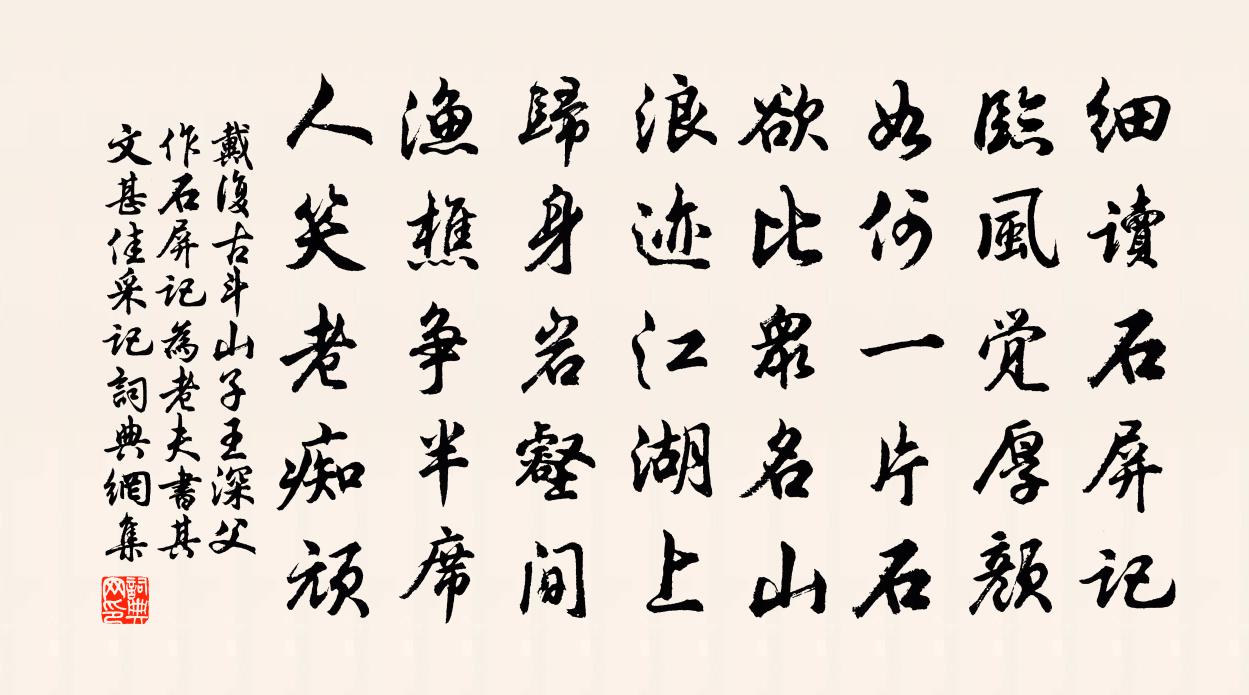 细读石屏记
臨風覚厚颜
如何一片石
欲比衆名山
浪迹江湖上
歸身岩壑间
渔樵争半席
人笑老痴顽
戴復古斗山子王深父
作石屏记為老夫書其
文甚佳采记詞典網集
詞典网印